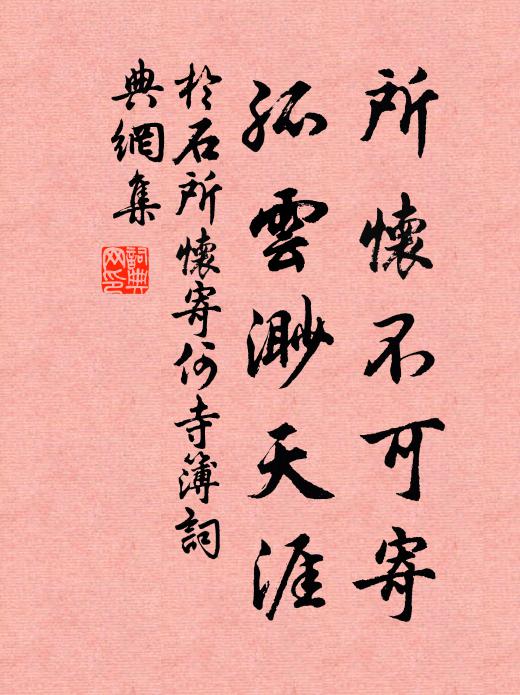 所懷不可寄
孤雲渺天涯
於石所懷寄何寺簿詞
典網集
詞典網印